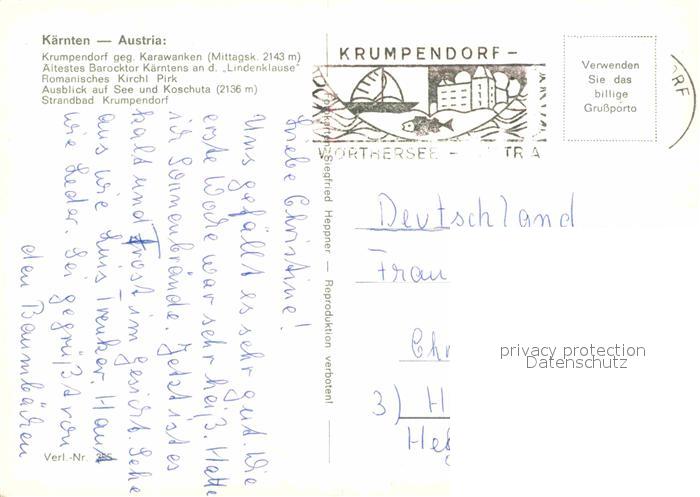 Kärnten — Austria:
Krumpendorf geg. Karawanken (Mittagsk. 2143 m)
Ältestes Barocktor Kärntens an d. „Lindenklause"
Romanisches Kirchl Pirk
Ausblick auf See und Koschuta (2136 m)
Strandbad Krumpendorf
KRUMPENDORF-
WÖRTHERSEE - TRIA
RF
Verwenden
Sie das
billige
Grußporto
Siegfried Heppner — Reproduktion verboten!
Liebe Christine!
Uns gefällt es sehr gut. Die
erste Woche war sehr heiß. Hatte
ich Sonnenbrände. Jetzt ist es
kalt und Frost im gesicht. Sehe
aus wie Luis Trenker. Haut
wie Leder. Sei gegrüßt von
den Baumbachen
Deutschland
Frau
Chr
3) H
Heg
privacy protection
Datenschutz
Verl.-Nr.